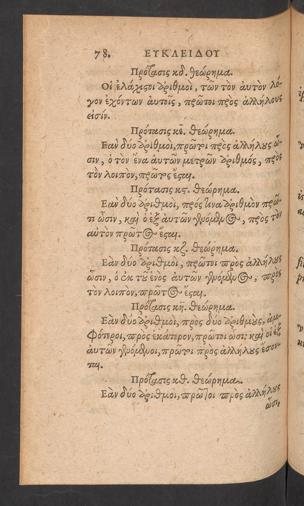 78. ΕΥΚΛΕΙΔΟΥ
Πρότασις κδ. θεώρημα.
Οἱ ἐλάχιστοι ἀριθμοὶ, τῶν τὸν αὐτὸν λό-
γον ἐχόντων αὐτοῖς, πρῶτοι πρὸς ἀλλήλους
εἰσίν.
Πρότασις κε. θεώρημα.
Ἐὰν δύο ἀριθμοὶ, πρῶτοι πρὸς ἀλλήλους ὦ-
σιν, ὁ τὸν ἕνα αὐτῶν μετρῶν ἀριθμὸς, πρὸς
τὸν λοιπὸν, πρῶτος ἔσται.
Πρότασις κς. θεώρημα.
Ἐὰν δύο ἀριθμοὶ, πρός τινα ἀριθμὸν πρῶ-
τοι ὦσιν, καὶ ὁ ἐξ αὐτῶν γενόμενος, πρὸς τὸν
αὐτὸν πρῶτος ἔσται.
Πρότασις κζ. θεώρημα.
Ἐὰν δύο ἀριθμοὶ, πρῶτοι πρὸς ἀλλήλους
ὦσιν, ὁ ἐκ τοῦ ἑνὸς αὐτῶν γενόμενος, πρὸς
τὸν λοιπὸν, πρῶτος ἔσται.
Πρότασις κη. θεώρημα.
Ἐὰν δύο ἀριθμοὶ, πρὸς δύο ἀριθμοὺς, ἀμ-
φότεροι, πρὸς ἑκάτερον, πρῶτοι ὦσι: καὶ οἱ ἐξ
αὐτῶν γενόμενοι, πρῶτοι πρὸς ἀλλήλους ἔσον-
ται.
Πρότασις κθ. θεώρημα.
Ἐὰν δύο ἀριθμοὶ, πρῶτοι πρὸς ἀλλήλους
ὦσι,